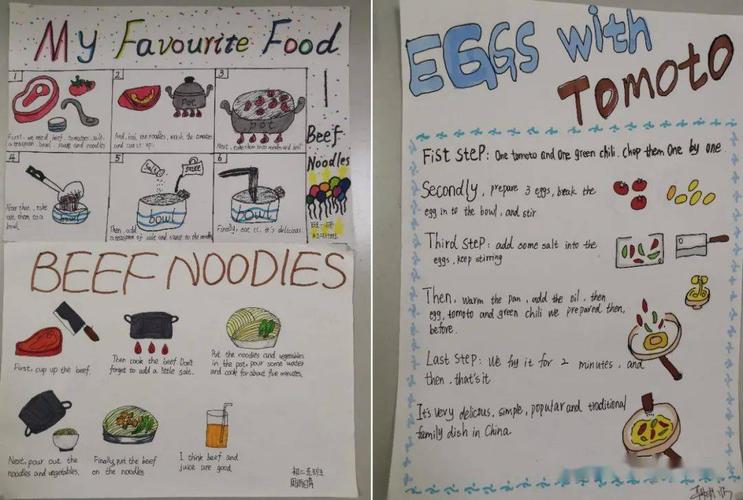 My Favourite Food
1
First, we need beef, tomatoes, salt,
a teaspoon, bowl, sauce and noodles
2
Pot
and cut it up.
3
pot
4
After that, take
out them to a
bowl.
5
Salt
sauce
bowl
Then, add
a teaspoon of salt and sauce to the noodles
6
bowl
Finally, eat it, it's delicious.
Beef
Noodles
BEEF NOODlES
First, cup up the beef.
Then cook the beef. Don't
forget to add a little salt.
Put the noodles and vegetables
in the pot, pour some water
and cook for about five minutes.
Next, pour out the
noodles and vegetables.
Finally, put the beef
on the noodles
I think beef and
juice are good.
EGGS with
TOMOTO
Fist steP: One tomato and one green chili. chop them one by one
Secondly, prepare 3 eggs, break the
egg in to the bowl, and stir
Third step: add some salt into the
eggs, keep stirring
Then, warm the pan, add the oil, then
egg, tomato and green chili we prepared then,
before.
Last step: We fry it for 2 minutes, and
then, that's it
It's very delicious, simple, popular and traditional
family dish in China